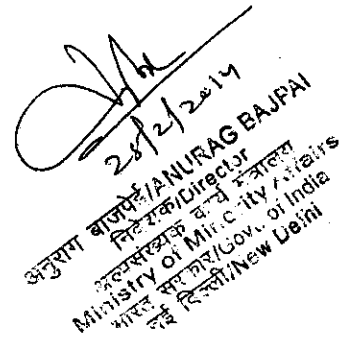 28/2/2014
अनुराग बाजपेई/ANURAG BAJPAI
निदेशक/Director
अल्पसंख्यक कार्य मंत्रालय
Ministry of Minority Affairs
भारत सरकार/Govt. of India
नई दिल्ली/New Delhi